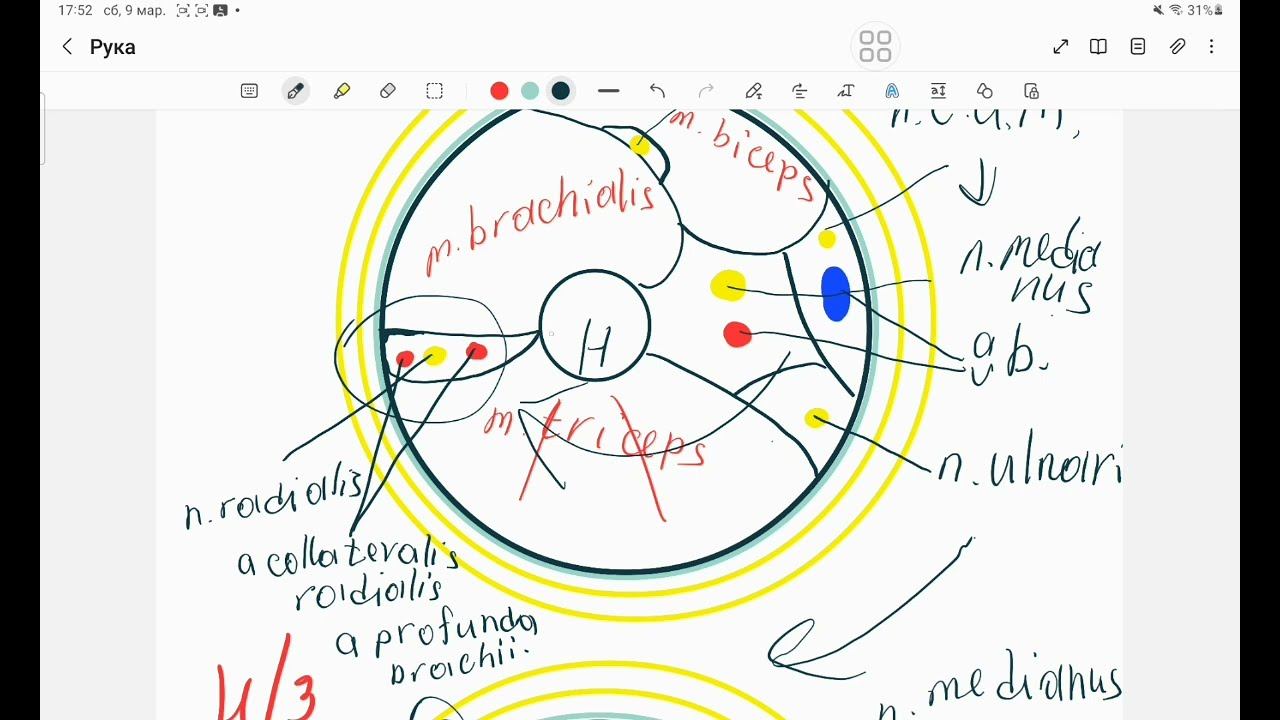 17:52 сб, 9 мар.
31%
Рука
m. biceps
m. brachialis
n. media
nus
H
a
v b.
m. triceps
n. ulnari
n. radialis
a collateralis
radialis
a profunda
brachii.
H/3
n. medianus